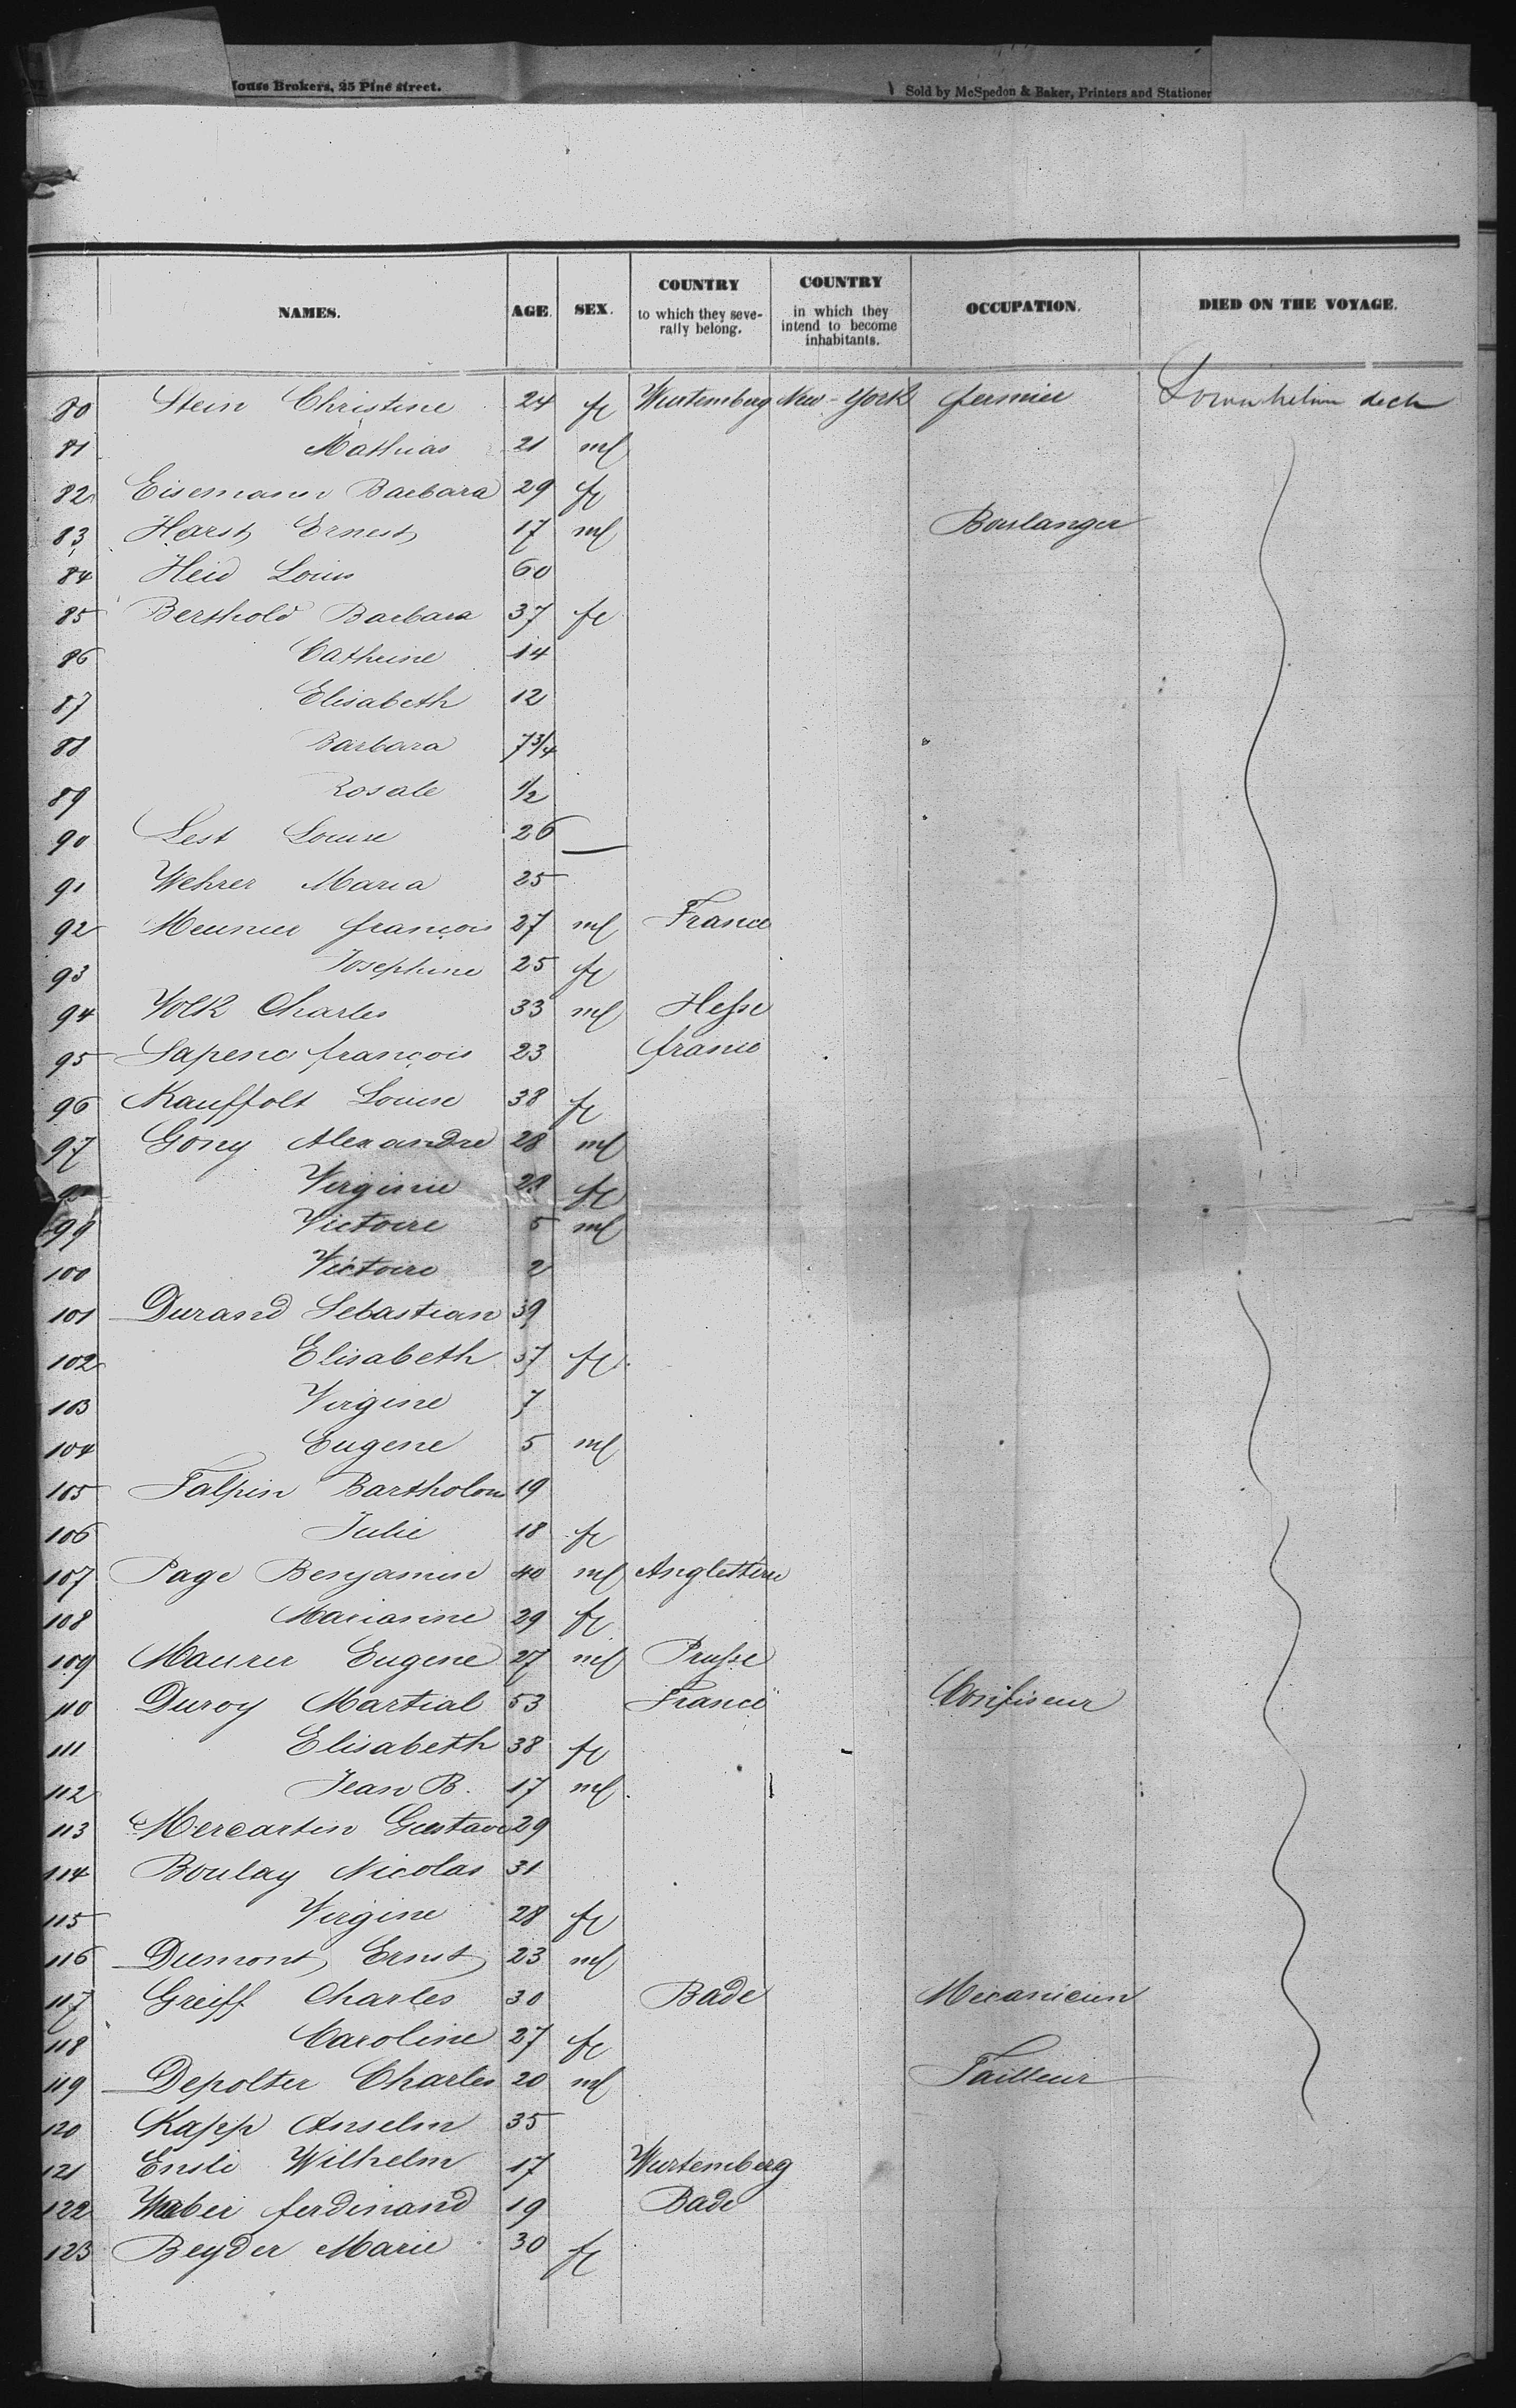 House Brokers, 25 Pine street.
Sold by McSpedon & Baker, Printers and Stationer
NAMES. AGE. SEX. COUNTRY to which they severally belong. COUNTRY in which they intend to become inhabitants. OCCUPATION. DIED ON THE VOYAGE.
80 Stein Christine 24 fe Wurtemberg New-York fermier deck
81 Mathias 21 ml
82 Eisemann Barbara 29 fe
83 Horst Ernest 17 ml Boulanger
84 Heid Louis 60
85 Berthold Barbara 37 fe
86 Cathrine 14
87 Elisabeth 12
88 Barbara 7 3/4
89 Rosale 1/2
90 Lest Louise 26
91 Wehrer Maria 25
92 Meunier françois 27 ml France
93 Josephine 25 fe
94 Volk Charles 33 ml Hesse
95 Lapene françois 23 france
96 Kauffolt Louise 38 fe
97 Gony Alexandre 28 ml
98 Virginie 21 fe
99 Victoire 5 ml
100 Victoire 2
101 Durand Sebastian 39
102 Elisabeth 37 fe
103 Virgine 7
104 Eugene 5 ml
105 Falpin Bartholom 19
106 Julie 18 fe
107 Page Benjamin 40 ml Angletterre
108 Marianne 29 fe
109 Maurer Eugene 27 ml Prusse
110 Duroy Martial 53 France Confiseur
111 Elisabeth 38 fe
112 Jean B. 17 ml
113 Mercartin Gustave 29
114 Boulay Nicolas 31
115 Virgine 28 fe
116 Dumont Ernst 23 ml
117 Greiff Charles 30 Bade Mecanicien
118 Caroline 27 fe
119 Depolter Charles 20 ml Tailleur
120 Kapp Anselm 35
121 Ensle Wilhelm 17 Wurtemberg
122 Weber ferdinand 19 Bade
123 Beyder Marie 30 fe